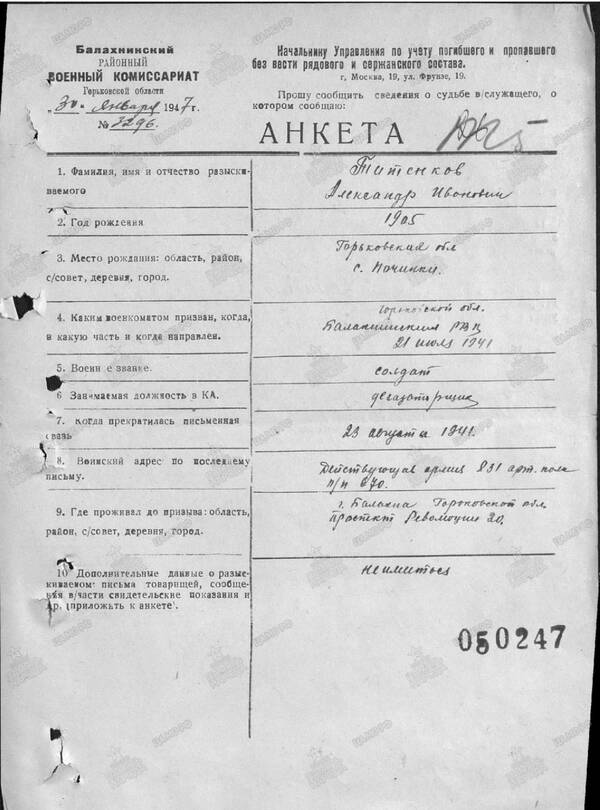 Балахнинский
РАЙОННЫЙ
ВОЕННЫЙ КОМИССАРИАТ
Горьковской области
„30“ января 1947 г.
№ 3296.
Начальнику Управления по учету погибшего и пропавшего
без вести рядового и сержанского состава.
г. Москва, 19, ул. Фрунзе, 19.
Прошу сообщить сведения о судьбе в/служащего, о
котором сообщаю:
АНКЕТА
1. Фамилия, имя и отчество разыски-
ваемого
Титенков
Александр Иванович
2. Год рождения
1905
3. Место рождания: область, район,
с/совет, деревня, город.
Горьковская обл
с. Починки.
4. Каким военкоматом призван, когда,
в какую часть и когда направлен.
Горьковской обл.
Балахнинским РВК
21 июля 1941
5. Воени е званке.
солдат
6 Занимаемая должность в КА.
дегазаторщик
7. Когда прекратилась письменная
связь
23 августа 1941.
8. Воинский адрес по последнему
письму.
Действующая армия 831 арт. полк
п/п 670.
9. Где проживал до призыва: область,
район, с/совет, деревня, город.
г. Балахна Горьковской обл.
проспект Революции 20.
10 Дополнительные данные о разыс-
киваемом: письма товарищей, сообще-
ния в/части свидетельские показания и
др. (приложть к анкете).
не имитьса
050247